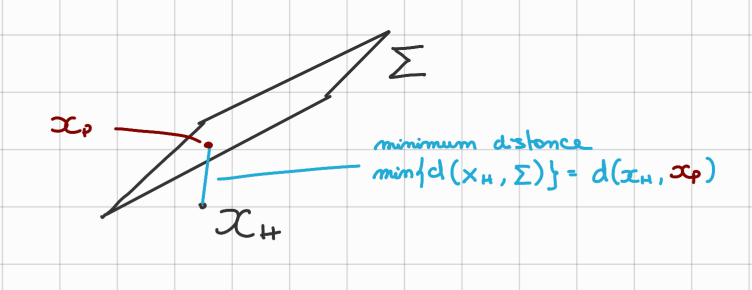 Σ
x_P
minimum distance
min{d(x_H, Σ)} = d(x_H, x_P)
x_H